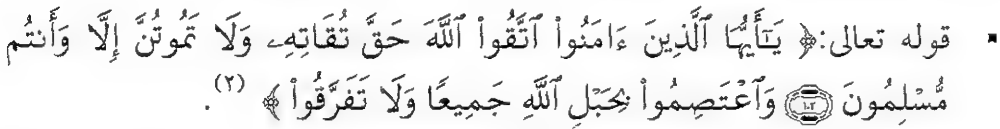 ▪ قوله تعالى:﴿ يَـٰٓأَيُّهَا ٱلَّذِينَ ءَامَنُوا۟ ٱتَّقُوا۟ ٱللَّهَ حَقَّ تُقَاتِهِۦ وَلَا تَمُوتُنَّ إِلَّا وَأَنتُم
مُّسْلِمُونَ ۝١٠٢ وَٱعْتَصِمُوا۟ بِحَبْلِ ٱللَّهِ جَمِيعًا وَلَا تَفَرَّقُوا۟ ﴾ (٢).